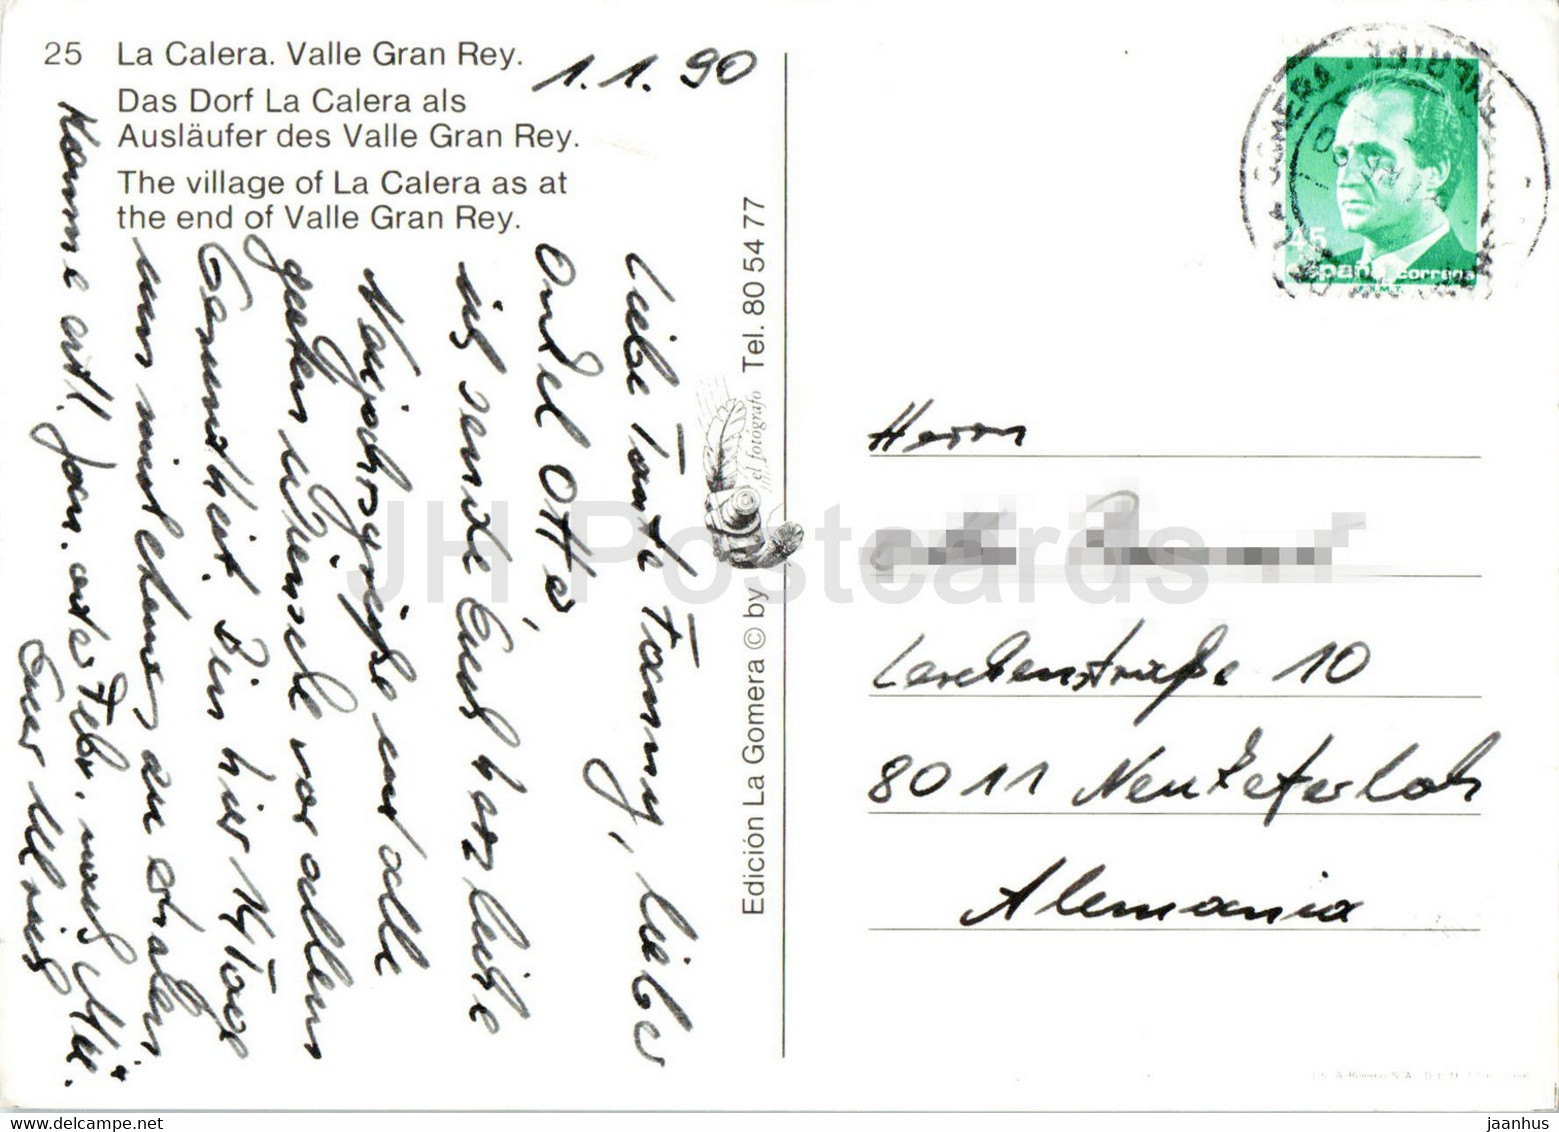 25 La Calera. Valle Gran Rey.
Das Dorf La Calera als
Ausläufer des Valle Gran Rey.
The village of La Calera as at
the end of Valle Gran Rey.
1.1.90
Liebe Tante Fanny, lieber
Onkel Otto,
ich sende Euch herzliche
Neujahrsgrüße und alle
guten Wünsche vor allem
Gesundheit. Bin hier 14 Tage
um mich zu
Komme evtl. Jan. oder Febr. nach Mü.
Euer Ulrich
Edición La Gomera © by
el fotógrafo
Tel. 80 54 77
45
españa correos
F.N.M.T.
GOMERA
Herrn
Lerchenstraße 10
8011 Neukeferloh
Alemania
JH Postcards
delcampe.net
jaanhus